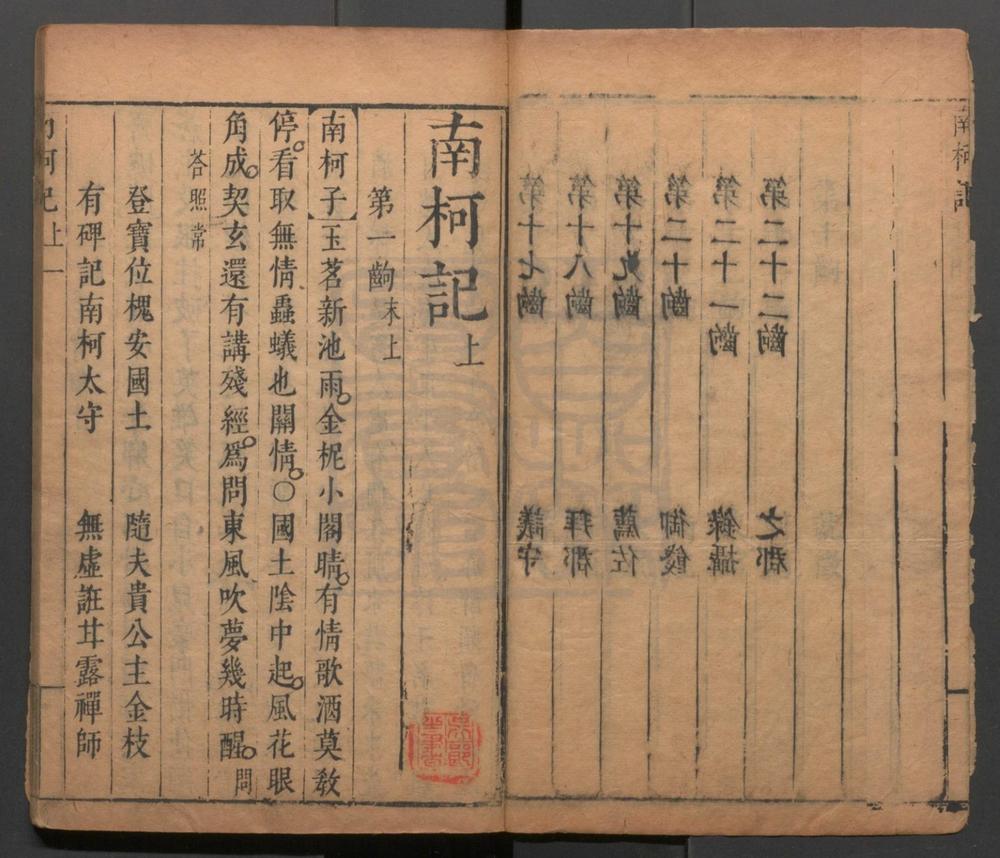 南柯記
第二十二齣　之郡
第二十一齣　錄攝
第二十齣　御餞
第十九齣　薦佐
第十八齣　拜郡
第十七齣　議守
南柯記上
第一齣末上
【南柯子】玉茗新池雨。金柅小閣晴。有情歌酒莫敎
停。看取無情蟲蟻也關情。○國土陰中起。風花眼
角成。契玄還有講殘經。爲問東風吹夢幾時醒。問
荅照常
登寶位槐安國土　隨夫貴公主金枝
有碑記南柯太守　無虛誑甘露禪師
南柯記上　一